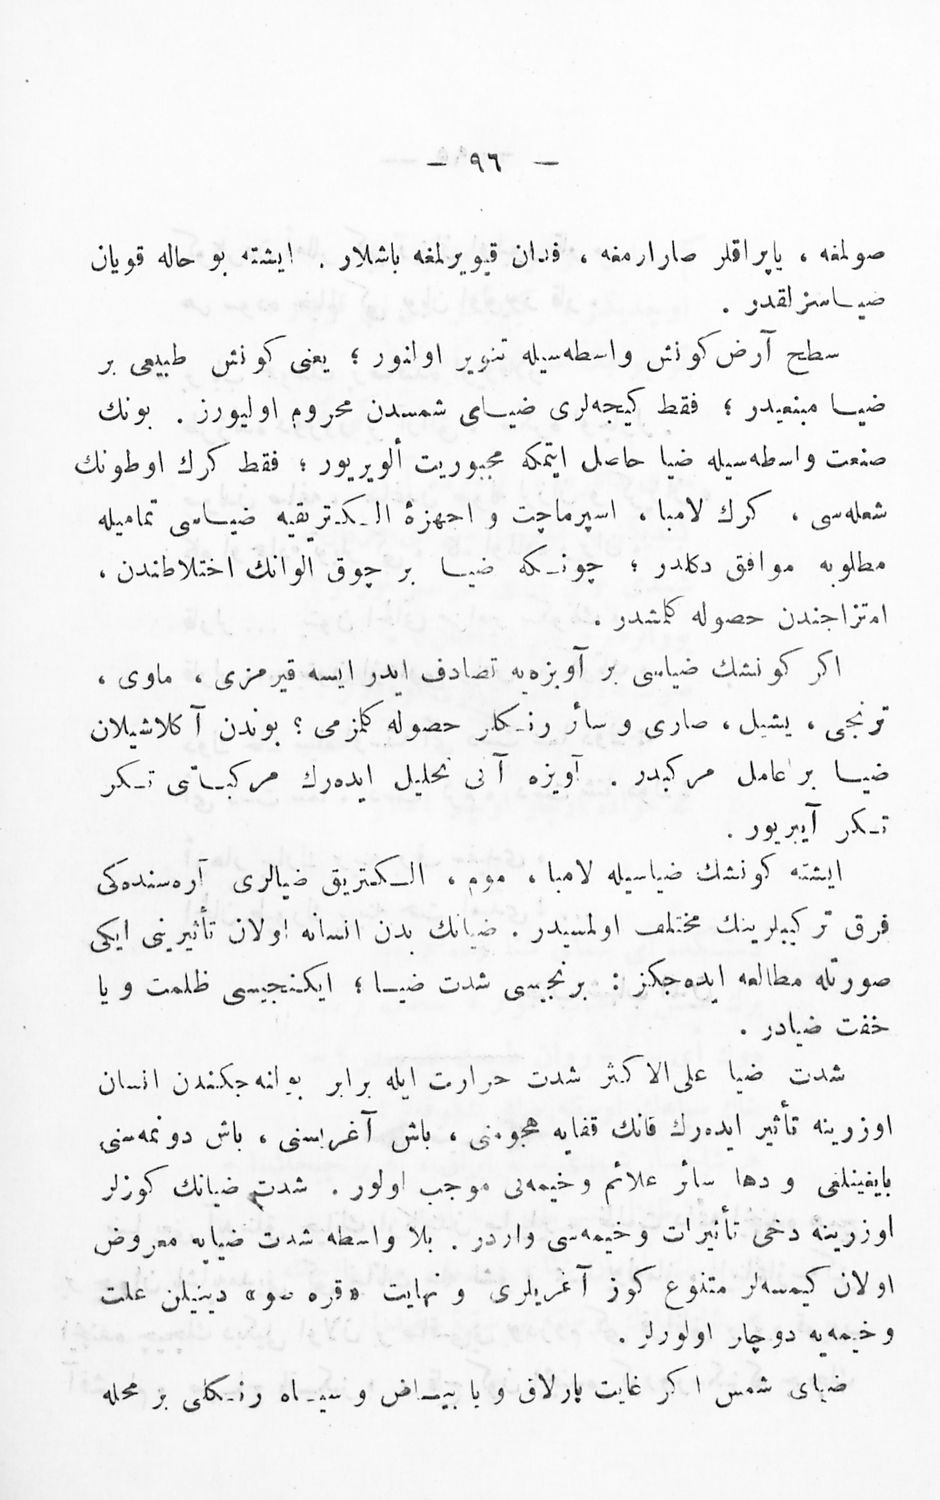 — ٩٦ —
صولمغه ، یاپراقلر صارارمغه ، فدان قیویرلمغه باشلار . ایشته بو حاله قویان
ضیاسزلقدر .
سطح آرض كونش واسطه‌سیله تنویر اولنور ؛ یعنی كونش طبیعی بر
ضیا منبعیدر ؛ فقط كیجه‌لری ضیای شمسدن محروم اولیورز . بونك
صنعت واسطه‌سیله ضیا حاصل ایتمكه مجبوریت ألویریور ؛ فقط كرك اوطونك
شعله‌سی ، كرك لامبا ، اسپرماچت و اجهزهٔ الكتریقیه ضیاسی تمامیله
مطلوبه موافق دكلدر ؛ چونكه ضیا بر چوق الوانك اختلاطندن ،
امتزاجندن حصوله كلمشدر .
اكر كونشك ضیاسی بر آویزه‌یه تصادف ایدر ایسه قیرمزی ، ماوی ،
ترنجی ، یشیل ، صاری و سائر رنكلر حصوله كلمزمی ؟ بوندن آكلاشیلان
ضیا بر عامل مركبدر . آویزه آنی تحلیل ایده‌رك مركباتی تكر
تكر آییریور .
ایشته كونشك ضیاسیله لامبا ، موم ، الكتریق ضیالری آره‌سنده‌كی
فرق تركیبلرینك مختلف اولمسیدر . ضیانك بدن انسانه اولان تأثیرینی ایكی
صورتله مطالعه ایده‌جكز : برنجیسی شدت ضیا ؛ ایكنجیسی ظلمت و یا
خفت ضیادر .
شدت ضیا علی‌الاكثر شدت حرارت ایله برابر بولنه‌جكندن انسان
اوزرینه تأثیر ایده‌رك قانك قفایه هجومنی ، باش آغریسنی ، باش دونمه‌سنی
بایغینلغی و دها سائر علائم وخیمه‌یی موجب اولور . شدت ضیانك كوزلر
اوزرینه دخی تأثیرات وخیمه‌سی واردر . بلا واسطه شدت ضیایه معروض
اولان كیمسه‌لر متنوع كوز آغریلری و نهایت «قره صو» دینیلن علت
وخیمه‌یه دوچار اولورلر .
ضیای شمس اكر غایت پارلاق و یا بیاض و سیاه رنكلی بر محله